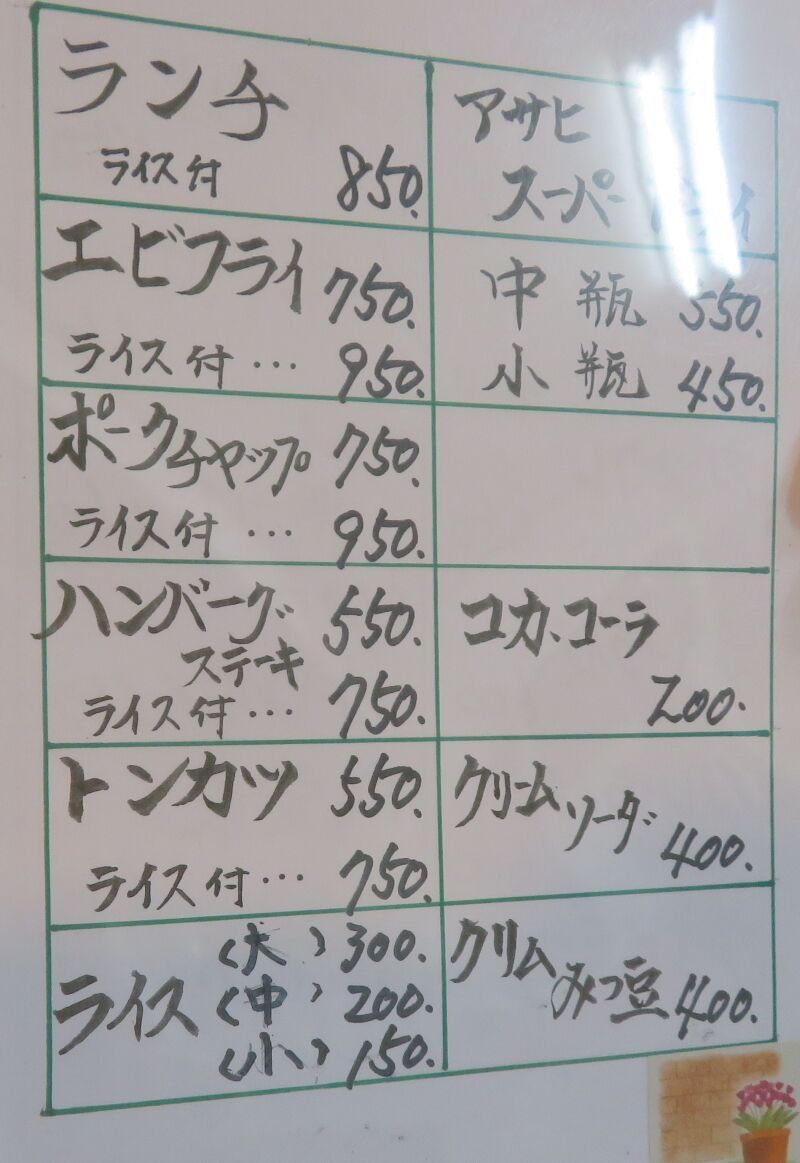 ランチ
ライス付 850.
エビフライ 750.
ライス付… 950.
ポークチャップ 750.
ライス付… 950.
ハンバーグ 550.
ステーキ
ライス付… 750.
トンカツ 550.
ライス付… 750.
ライス (大) 300.
(中) 200.
(小) 150.
アサヒ
スーパードライ
中瓶 550.
小瓶 450.
コカ、コーラ
200.
クリームソーダ 400.
クリムみつ豆 400.